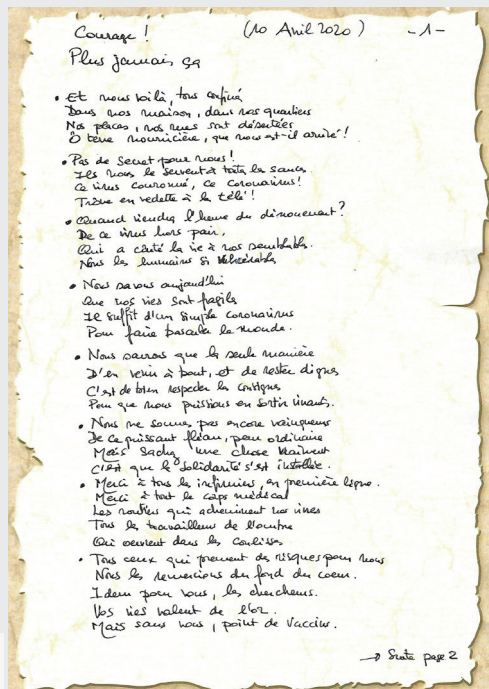 Courage !
(10 Avril 2020)
-1-
Plus jamais ça
• Et nous voilà, tous confiné
Dans nos maison, dans nos quartiers
Nos places, nos rues sont désertées
Ô terre nourricière, que nous est-il arrivé !
• Pas de secret pour nous !
Ils nous le servent à toutes les sauces
Ce virus couronné, ce coronavirus !
Trône en vedette à la télé !
• Quand viendra l'heure du dénouement ?
De ce virus hors pair,
Qui a coûté la vie à nos semblables.
Nous les humains si vulnérables
• Nous savons aujourd'hui
Que nos vies sont fragiles
Il suffit d'un simple coronavirus
Pour faire basculer le monde.
• Nous savons que la seule manière
D'en venir à bout, et de rester dignes
C'est de bien respecter les consignes
Pour que nous puissions en sortir vivants.
• Nous ne sommes pas encore vainqueurs
De ce puissant fléau, peu ordinaire
Mais sachez une chose vraiment
C'est que la solidarité s'est installée.
• Merci à tous les infirmiers, en première ligne.
Merci à tout le corps médical
Les routiers qui acheminent nos vivres
Tous les travailleurs de l'ombre
Qui oeuvrent dans les coulisses
• Tous ceux qui prennent des risques pour nous
Nous les remercions du fond du coeur.
Idem pour vous, les chercheurs.
Vos vies valent de l'or.
Mais sans vous, point de vaccins.
→ Suite page 2